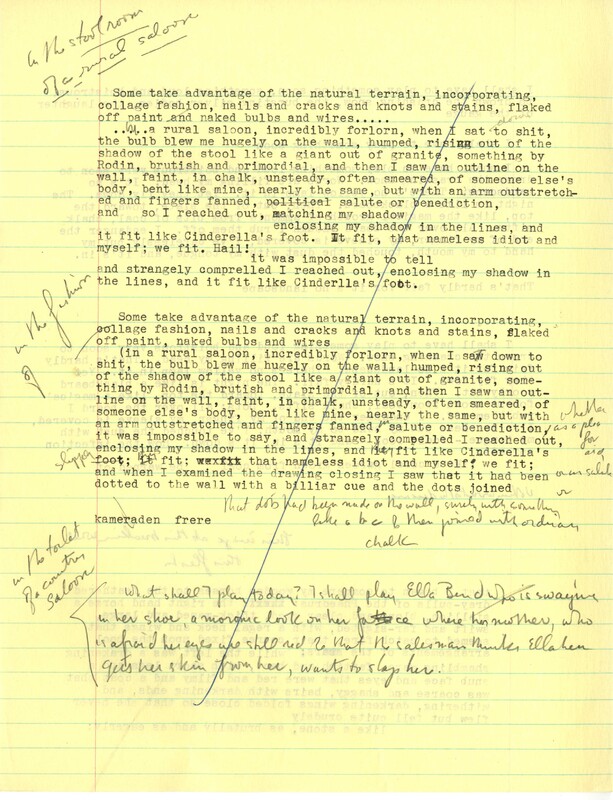 in the stool room
of a rural saloon
Some take advantage of the natural terrain, incorporating,
collage fashion, nails and cracks and knots and stains, flaked
off paint and naked bulbs and wires.....
down
...In a rural saloon, incredibly forlorn, when I sat to shit,
the bulb blew me hugely on the wall, humped, rising out of the
shadow of the stool like a giant out of granite, something by
Rodin, brutish and primordial, and then I saw an outline on the
wall, faint, in chalk, unsteady, often smeared, of someone else's
body, bent like mine, nearly the same, but with an arm outstretch-
ed and fingers fanned, political salute or benediction,
and so I reached out, matching my shadow
enclosing my shadow in the lines, and
it fit like Cinderella's foot. It fit, that nameless idiot and
myself; we fit. Hail!
it was impossible to tell
and strangely comprelled I reached out, enclosing my shadow in
the lines, and it fit like Cinderlla's foot.
in the fashion
of
Some take advantage of the natural terrain, incorporating,
collage fashion, nails and cracks and knots and stains, flaked
off paint, naked bulbs and wires
(in a rural saloon, incredibly forlorn, when I sat down to
shit, the bulb blew me hugely on the wall, humped, rising out
of the shadow of the stool like a giant out of granite, some-
thing by Rodin, brutish and primordial, and then I saw an out-
line on the wall, faint, in chalk, unsteady, often smeared, of
someone else's body, bent like mine, nearly the same, but with
an arm outstretched and fingers fanned, in salute or benediction,
whether
it was impossible to say, and strangely compelled I reached out,
enclosing my shadow in the lines, and it fit like Cinderella's
slipper
foot; it fit; wexfit that nameless idiot and myself we fit;
and when I examined the drawing closing I saw that it had been
or in salute
or
dotted to the wall with a billiar cue and the dots joined
that dots had been made on the wall, surely with something
like a b c & then joined with ordinary
chalk
kameraden frere
in the toilet
of a country
saloon
What shall I play today? I shall play Ella Bend who is swaying
in her shoe, a moronic look on her face where her mother, who
is afraid her eyes are still red & that the salesman thinks Ella here
gets her skin from her, wants to slap her.